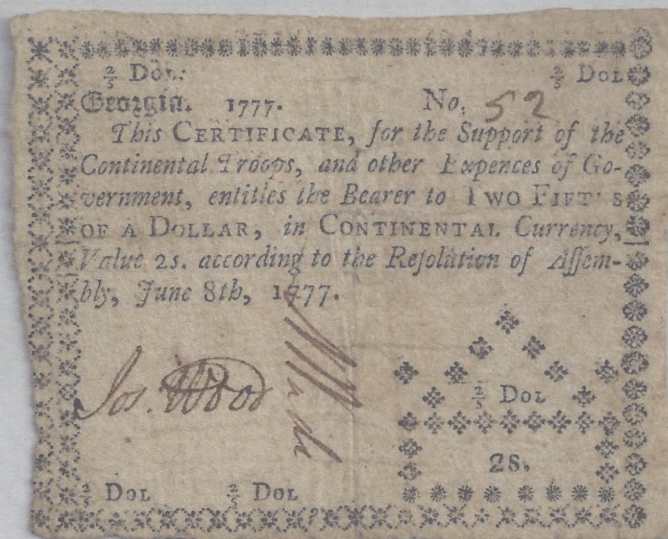 ⅖ Dol. ⅖ Dol
Georgia. 1777. No. 52
This CERTIFICATE, for the Support of the
Continental Troops, and other Expences of Go-
vernment, entitles the Bearer to TWO FIFTHS
OF A DOLLAR, in CONTINENTAL Currency,
Value 2s. according to the Reſolution of Aſſem-
bly, June 8th, 1777.
Jos. Wood
⅖ Dol
2s.
⅖ Dol ⅖ Dol